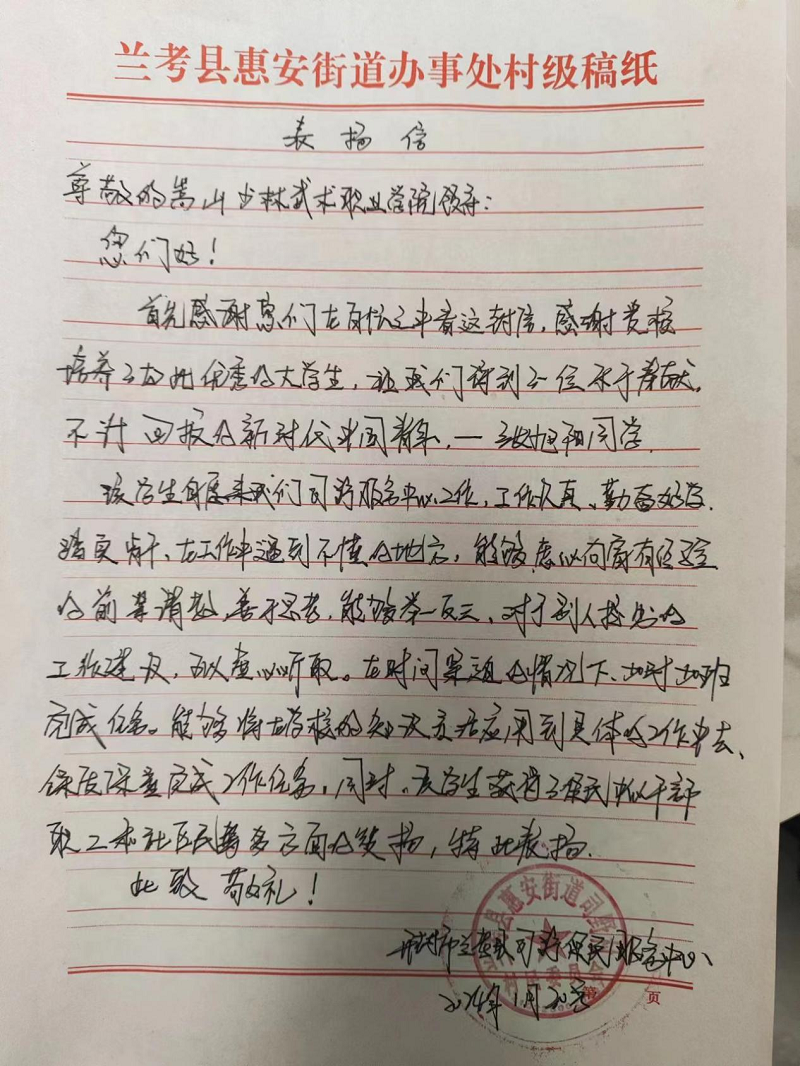 兰考县惠安街道办事处村级稿纸
表扬信
尊敬的嵩山少林武术职业学院领导：
您们好！
首先感谢您们在百忙之中看这封信，感谢贵校
培养了如此优秀的大学生，让我们得到了一位乐于奉献、
不计回报的新时代中国青年，一旭阳同学。
该学生自愿来我们司野服务中心工作，工作认真、勤奋好学、
踏实肯干、在工作中遇到不懂的地方，能够虚心向富有经验
的前辈请教，善于思考，能够举一反三，对于别人提出的
工作建议，可以虚心听取。在时间紧迫的情况下、加时加班
完成任务。能够将在学校的知识灵活应用到具体的工作中去、
保质保量完成工作任务，同时，该学生获得了便民中心干部
职工和社区民等多方面的赞扬，特此表扬。
此致 敬礼！
开封市兰考县司野便民服务中心
2024年1月20号
县惠安街道司野
村民委员会
第 页